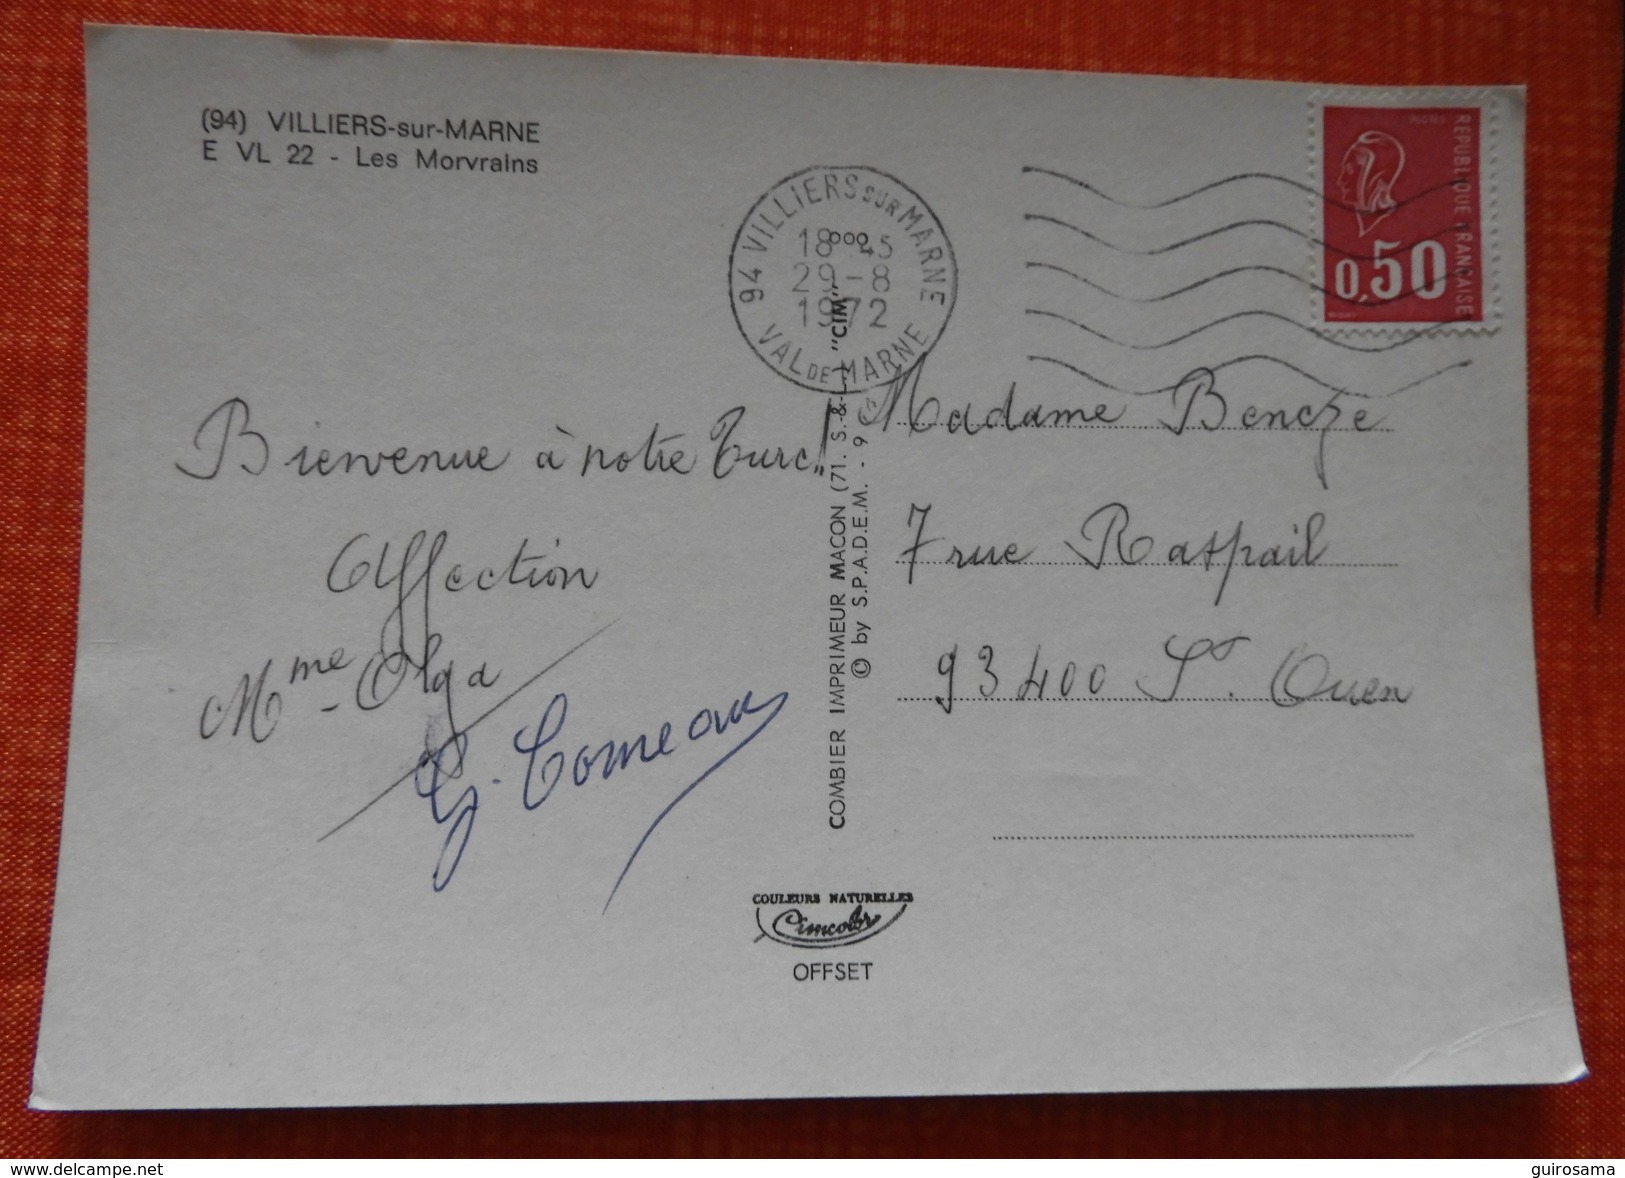 (94) VILLIERS-sur-MARNE
E VL 22 - Les Morvrains
94 VILLIERS SUR MARNE
18 45
29-8
1972
VAL DE MARNE
REPUBLIQUE FRANCAISE
0,50
Bienvenue à notre Turc!
Affection
Mme Olga
G. Comeau
Madame Bencze
7 rue Raspail
93400 St. Ouen
COMBIER IMPRIMEUR MACON (71. S.-&-L.) "CIM"
© by S.P.A.D.E.M. - 9
COULEURS NATURELLES
Cimcolor
OFFSET
www.delcampe.net
guirosama